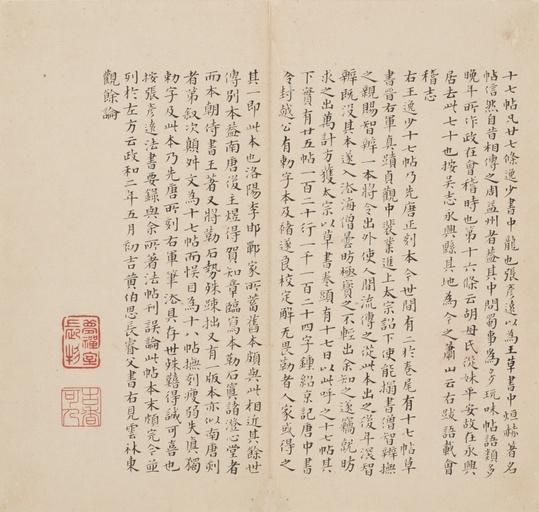 十七帖凡廿七條逸少書中龍也張彥遠以為王草書中烜赫著名
帖信然自昔相傳之周益州者蓋其中問蜀事為多玩味帖語類多
晚年所作政在會稽時也第十六條云胡母氏從妹平安故在永興
居去此七十也按吳志永興縣其地為今之蕭山云右跋語載會
稽志
右王逸少十七帖乃先唐正刻本今世間有二於卷尾有十七帖草
書晉右軍真蹟貞觀中裴業進上太宗詔下使能搨書僧智辯撫
之親賜智辯一本將令出外使人間流傳之從此本出之後年深智
辯既沒其本遂入洛海僧曇昉極寶之不輕出余知之遂竊就昉
求之出萬計方獲太宗以草書卷頭有十七日以此呼之十七帖其
下實有廿五帖一百二十行一千一百二十四字鍾紹京記唐中書
令封越公有勅字本及褚遂良校定解无畏勒者人家或得之
其一即此本也洛陽李邯鄲家所蓄舊本頗與此相近其餘世
傳別本蓋南唐後主煜得賀知章臨寫本勒石寘諸澄心堂者
而本朝侍書王著又將勒石勢殊疎拙又有一版本亦似南唐刻
者第敘次顛舛文為十七帖而误目為十八帖摹刻瘦弱失真獨
勅字及此本乃先唐所刻右軍筆法具存世殊艱得誠可喜也
按張彥遠法書要錄與余所著法帖刊誤論此帖本末頗完今並
列於左方云政和二年五月初吉黃伯思長睿父書右見雲林東
觀餘論
夢禪室
長判